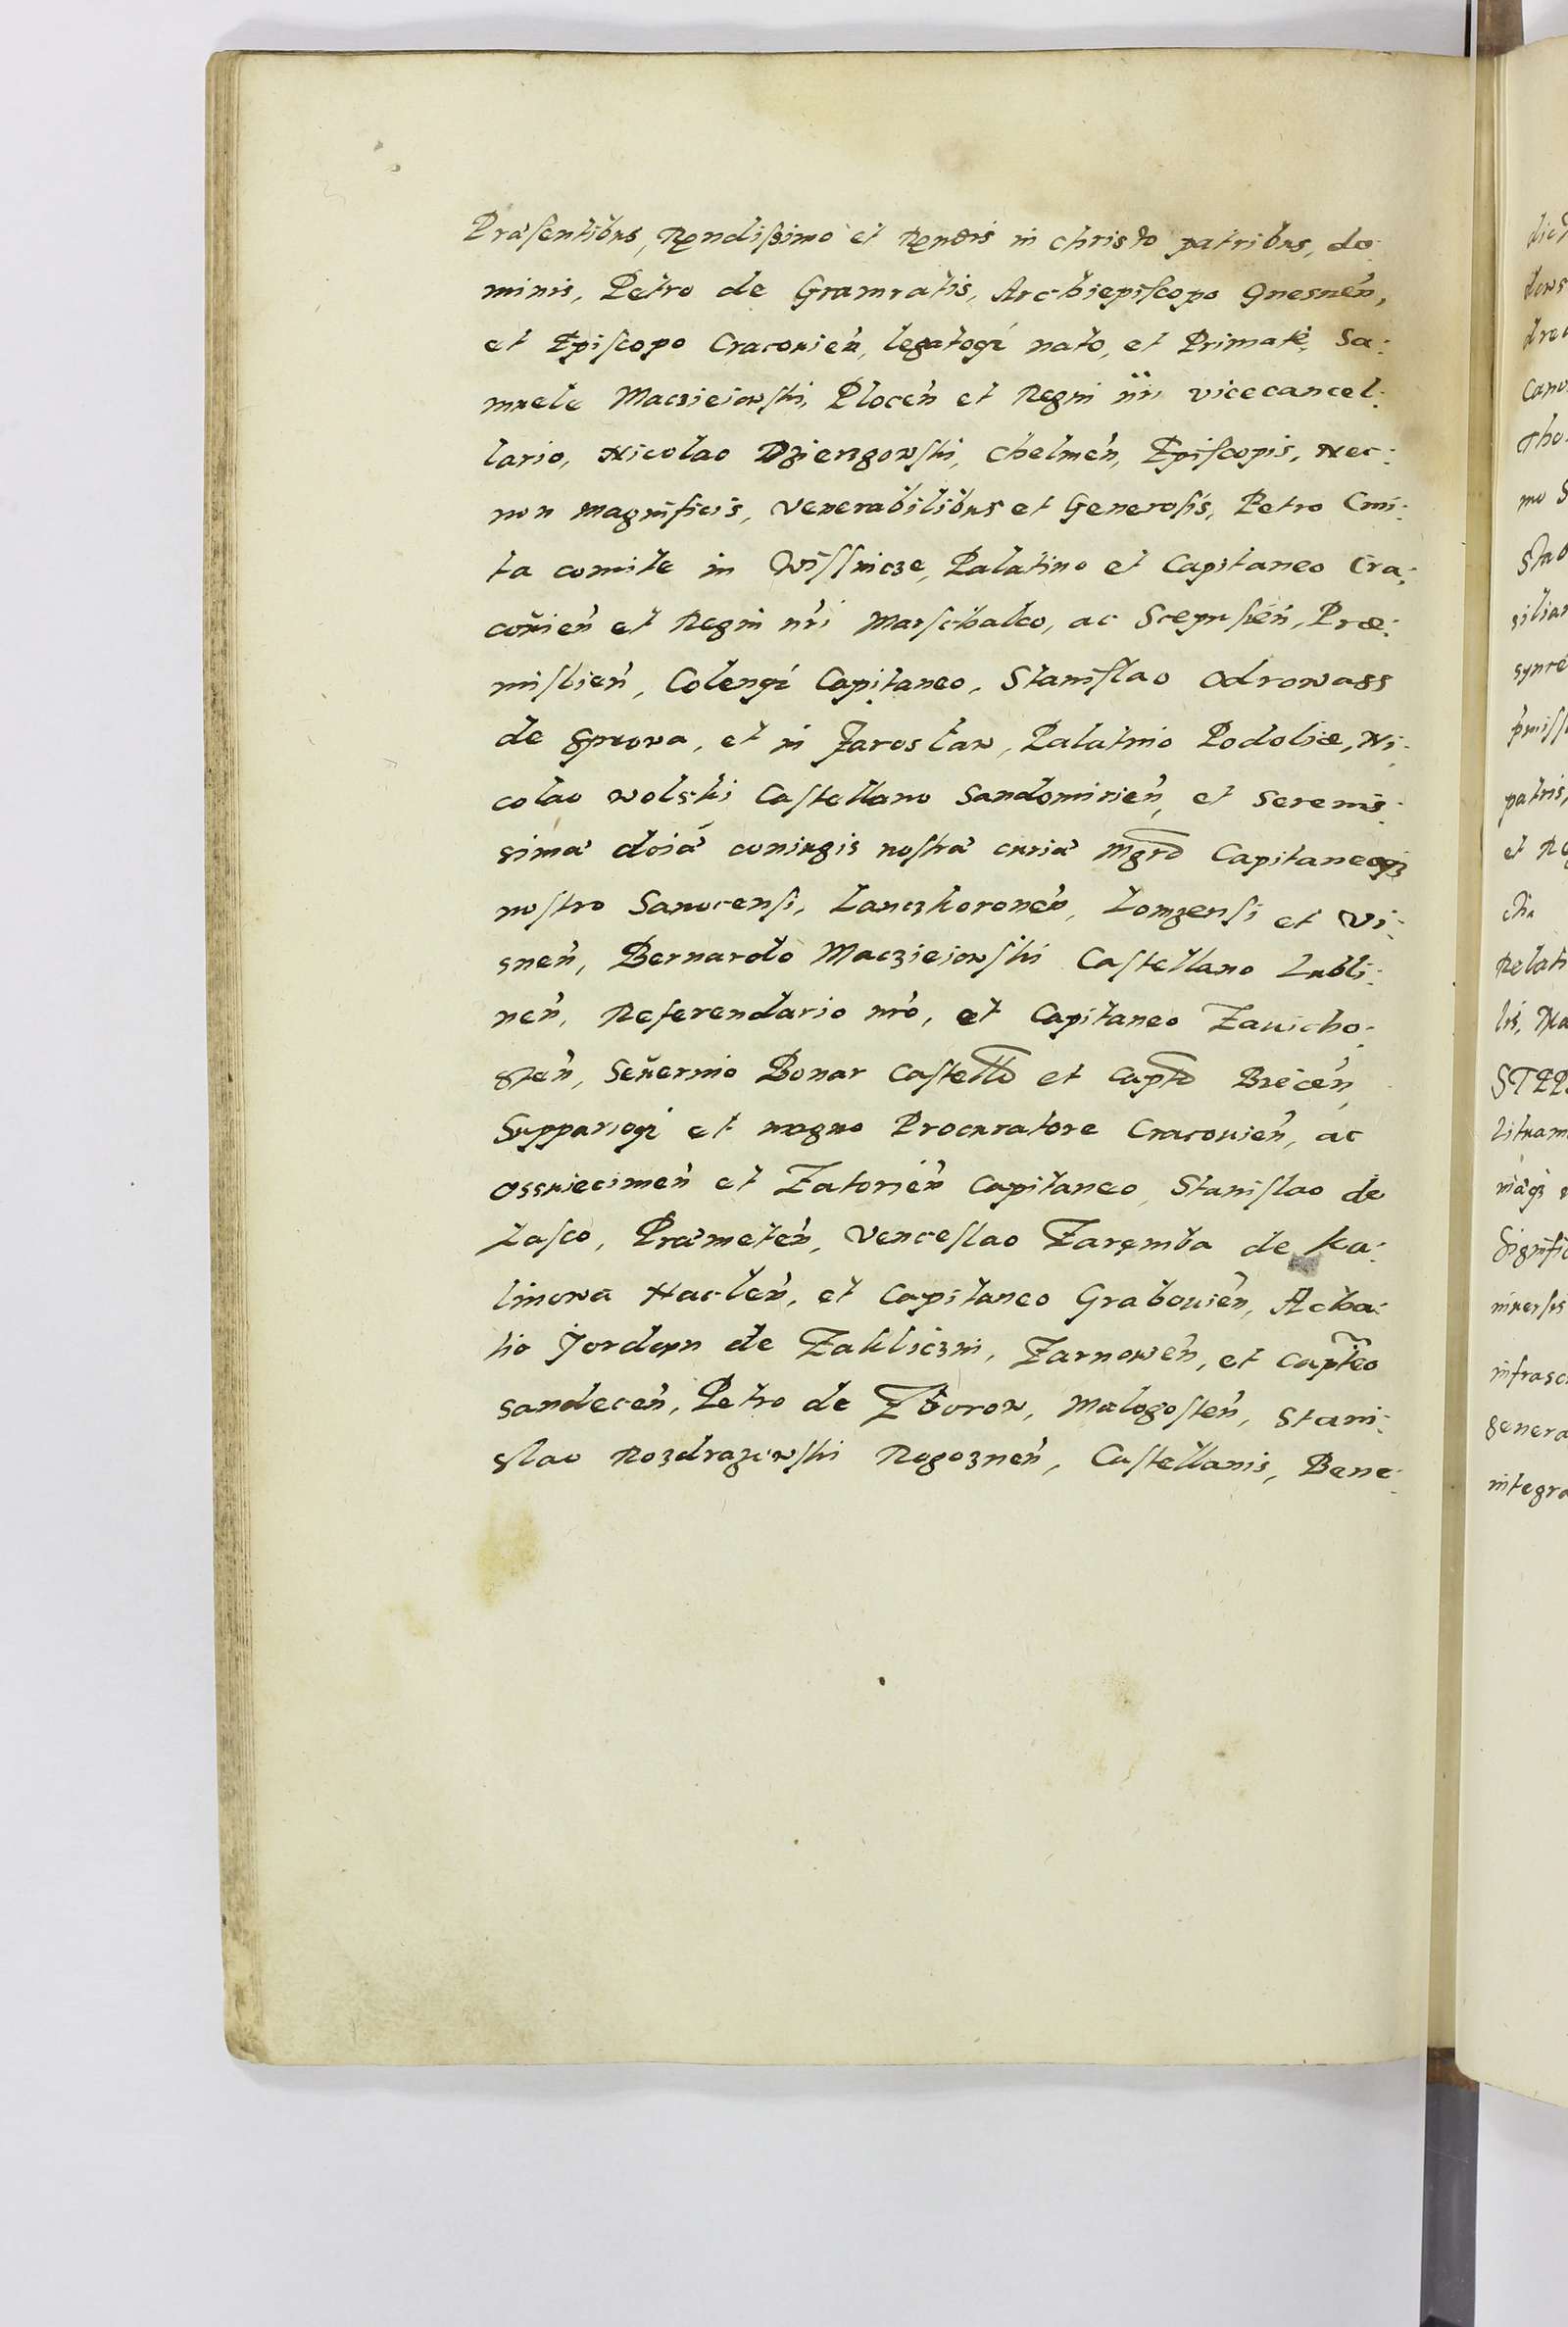 Præsentibus, Rendissimo et Rendis in christo patribus, do:
minis, Petro de Gamratis, Archiepiscopo Gnesnen,
et Episcopo Cracovien, legatoq; nato, et Primate, Sa:
muele Macziejowski, Plocen et Regni nri vicecancel:
lario, Nicolao Dzierzgowski, Chelmen, Episcopis, Nec:
non magnificis, venerabilibus et Generosis, Petro Cmi:
ta comite in Wissnicze, Palatino et Capitaneo Cra:
covien et Regni nri Marschalco, ac Scepusien, Præ:
mislien, Colenq; Capitaneo, Stanislao Odrowass
de Sprowa, et in Jarosław, Palatino Podoliæ, Ni:
colao Wolski Castellano Sandomirien, et Serenis:
simæ doiæ coniugis nostræ curiæ Mgro Capitaneoq3
nostro Sanocensi, Lanczkoronen, Lomzensi et Vi:
snen, Bernardo Macziejowski Castellano Lubli:
nen, Referendario nro, et Capitaneo Zavicho:
sten, Severino Bonar Castello et Capto Biecen,
Supparioq; et magno Procuratore Cracovien, ac
Osswiecimen et Zatorien Capitaneo, Stanislao de
Lasco, Præmeten, Venceslao Zaręmba de Ka:
linowa Naclen, et Capitaneo Grabovien, Acha:
tio Jordan de Zakliczni, Zarnowen, et Capteo
Sandecen, Petro de Zborow, Malogosten, Stani:
slao Rozdrazewski Rogoznen, Castellanis, Bene: